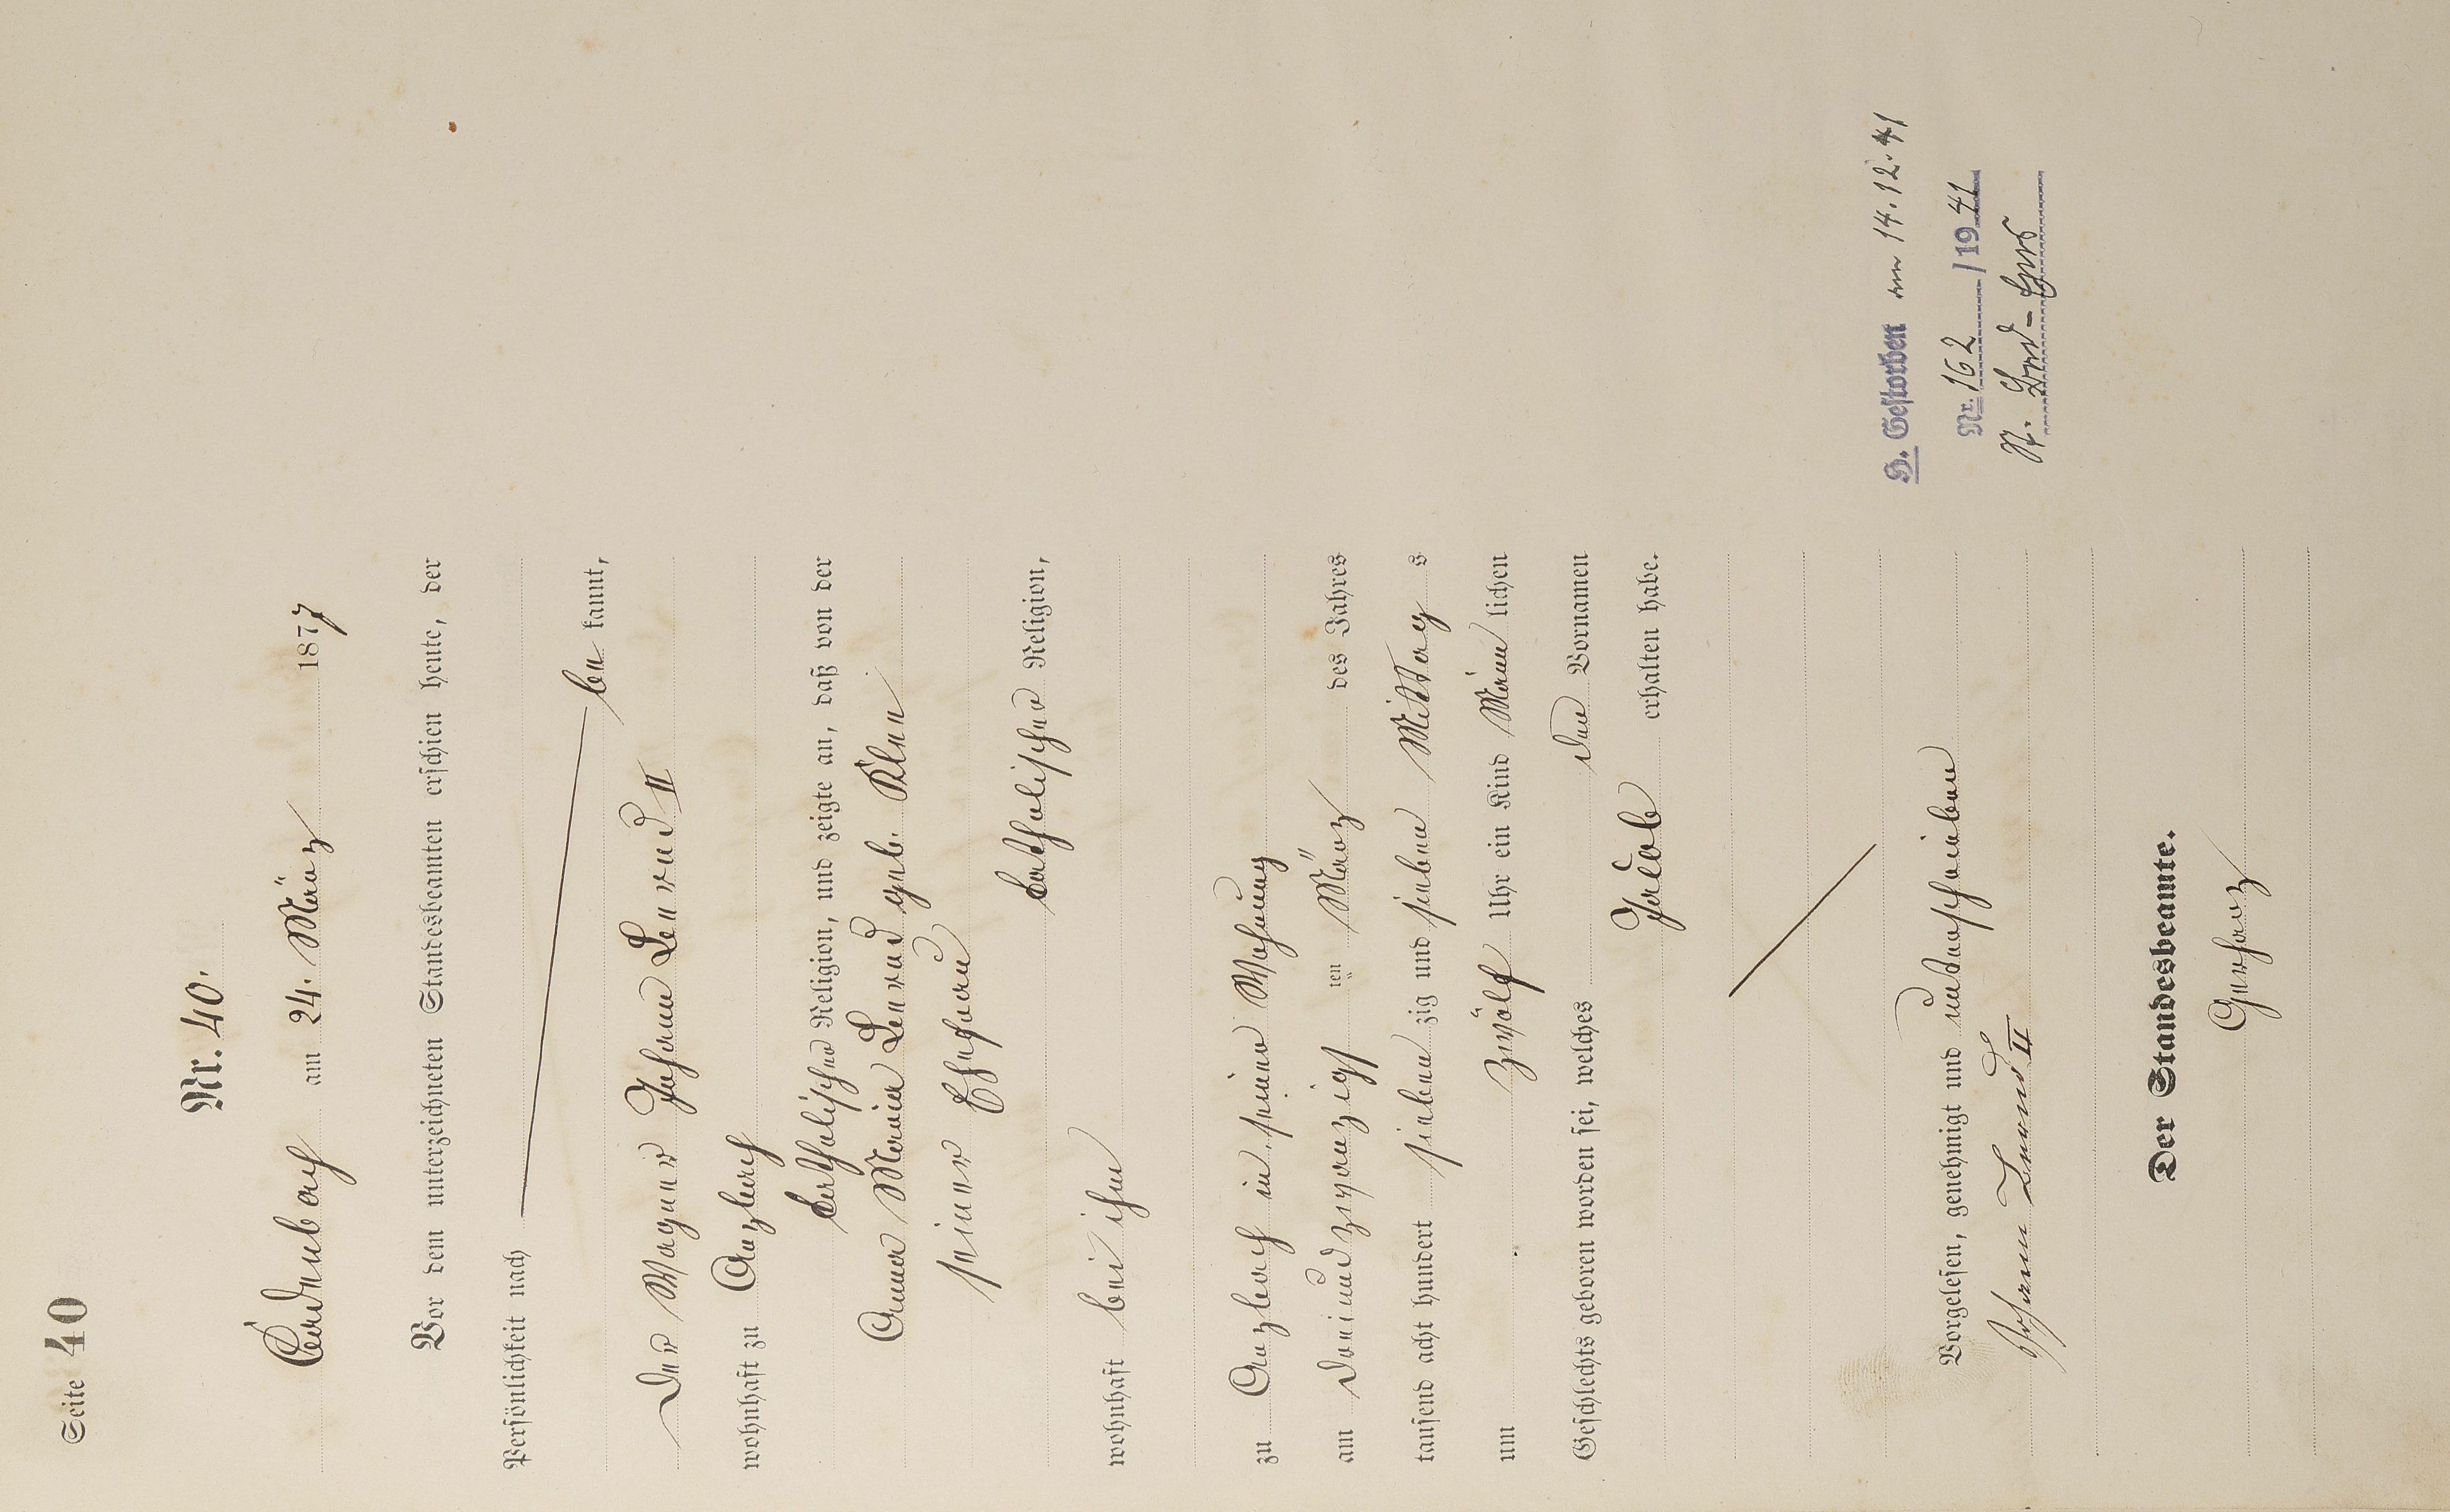 Seite 40
Nr. 40.
am 24. März 1877
Vor dem unterzeichneten Standesbeamten erschien heute, der
Persönlichkeit nach
be kannt,
Der Wagner Johann Leonard II
wohnhaft zu Anzbach
katholischer Religion, und zeigte an, daß von der
Anna Maria Leonard geb. Klee
seiner Ehefrau
katholischer Religion,
wohnhaft bei ihm
zu Anzbach in seiner Wohnung
am dreiundzwanzigst ten März des Jahres
tausend acht hundert sieben zig und sieben Mittag s
um zwölf Uhr ein Kind Männ lichen
Geschlechts geboren worden sei, welches den Vornamen
Jakob erhalten habe.
H. Gestorben am 14.12.41
Nr. 162 /1941
Vorgelesen, genehmigt und unterschrieben
Johann II
Der Standesbeamte.